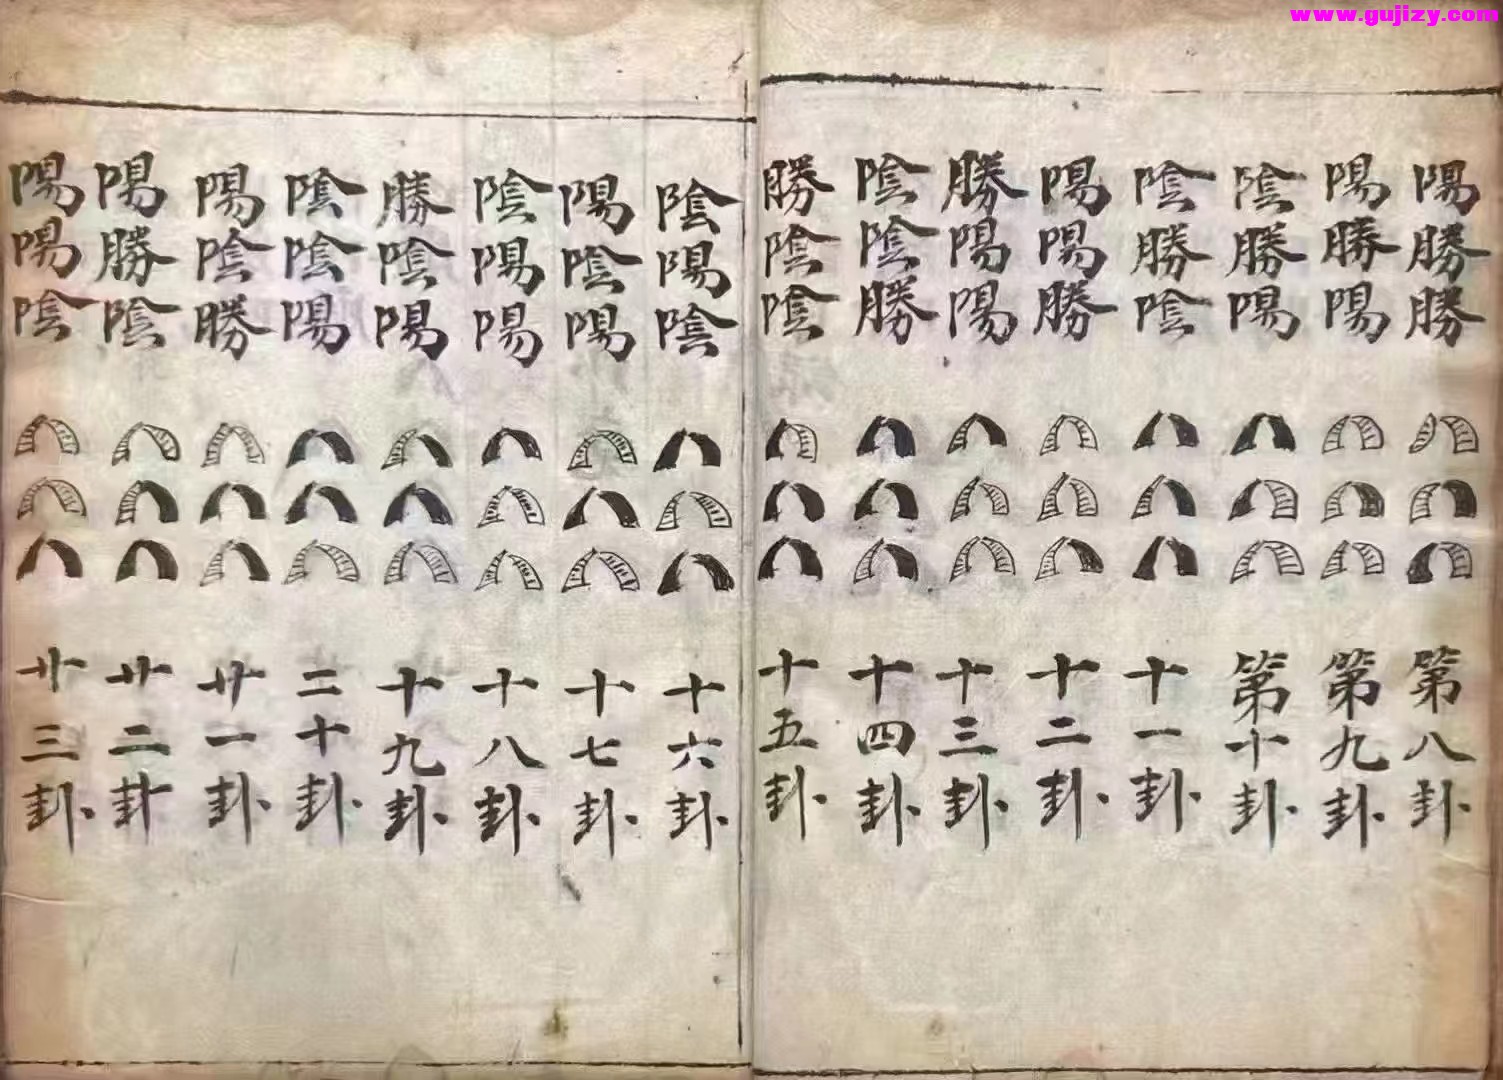 www.gujizy.com
陽勝勝 第八卦
陽勝陽 第九卦
陰勝陽 第十卦
陰勝陰 十一卦
陽陽勝 十二卦
勝陽陽 十三卦
陰陰勝 十四卦
勝陰陰 十五卦
陰陽陰 十六卦
陽陰陽 十七卦
陰陽陽 十八卦
勝陰陽 十九卦
陰陰陽 二十卦
陽陰勝 廿一卦
陽勝陰 廿二卦
陽陽陰 廿三卦